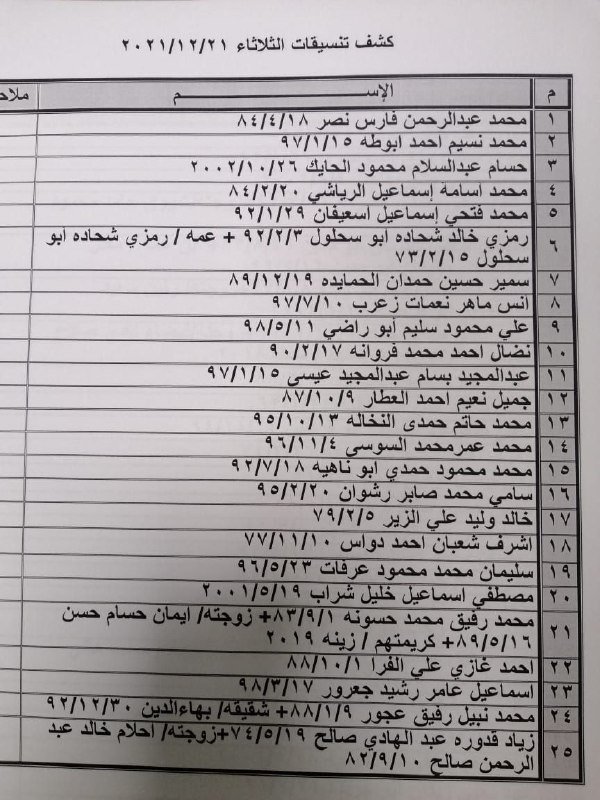 كشف تنسيقات الثلاثاء ٢٠٢١/١٢/٢١
م الإســـــــــم ملاح
١ محمد عبدالرحمن فارس نصر ٨٤/٤/١٨
٢ محمد نسيم احمد ابوطه ٩٧/١/١٥
٣ حسام عبدالسلام محمود الحايك ٢٠٠٢/١٠/٢٦
٤ محمد اسامه إسماعيل الرياشي ٨٤/٢/٢٠
٥ محمد فتحي إسماعيل اسعيفان ٩٢/١/٢٩
٦ رمزي خالد شحاده ابو سحلول ٩٢/٢/٣ + عمه / رمزي شحاده ابو
سحلول ٧٣/٢/١٥
٧ سمير حسين حمدان الحمايده ٨٩/١٢/١٩
٨ انس ماهر نعمات زعرب ٩٧/٧/١٠
٩ علي محمود سليم أبو راضي ٩٨/٥/١١
١٠ نضال احمد محمد فروانه ٩٠/٢/١٧
١١ عبدالمجيد بسام عبدالمجيد عيسى ٩٧/١/١٥
١٢ جميل نعيم احمد العطار ٨٧/١٠/٩
١٣ محمد حاتم حمدى النخاله ٩٥/١٠/١٣
١٤ محمد عمرمحمد السوسي ٩٦/١١/٤
١٥ محمد محمود حمدي ابو ناهيه ٩٢/٧/١٨
١٦ سامي محمد صابر رشوان ٩٥/٢/٢٠
١٧ خالد وليد علي الزير ٧٩/٢/٥
١٨ اشرف شعبان احمد دواس ٧٧/١١/١٠
١٩ سليمان محمد محمود عرفات ٩٦/٥/٢٣
٢٠ مصطفي اسماعيل خليل شراب ٢٠٠١/٥/١٩
٢١ محمد رفيق محمد حسونه ٨٣/٩/١+ زوجته/ ايمان حسام حسن
٨٩/٥/١٦+ كريمتهم / زينه ٢٠١٩
٢٢ احمد غازي علي الفرا ٨٨/١٠/١
٢٣ اسماعيل عامر رشيد جعرور ٩٨/٣/١٧
٢٤ محمد نبيل رفيق عجور ٨٨/١/٩+ شقيقه/ بهاءالدين ٩٢/١٢/٣٠
٢٥ زياد قدوره عبد الهادي صالح ٧٤/٥/١٩+زوجته/ احلام خالد عبد
الرحمن صالح ٨٢/٩/١٠